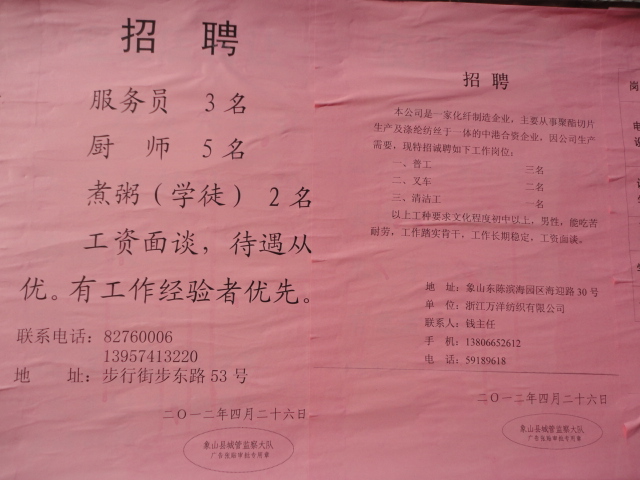 招 聘
服务员 3名
厨 师 5名
煮粥（学徒） 2名
工资面谈，待遇从
优。有工作经验者优先。
联系电话：82760006
13957413220
地 址：步行街步东路53号
二〇一二年四月二十六日
象山县城管监察大队
广告张贴审批专用章
招 聘
本公司是一家化纤制造企业，主要从事聚酯切片
生产及涤纶纺丝于一体的中港合资企业，因公司生产
需要，现特招诚聘如下工作岗位：
一、普工 三名
二、叉车 二名
三、清洁工 一名
以上工种要求文化程度初中以上，男性，能吃苦
耐劳，工作踏实肯干，工作长期稳定，工资面谈。
地 址：象山东陈滨海园区海迎路30号
单 位：浙江万洋纺织有限公司
联系人：钱主任
手 机：13806652612
电 话：59189618
二〇一二年四月二十六日
象山县城管监察大队
广告张贴审批专用章
岗